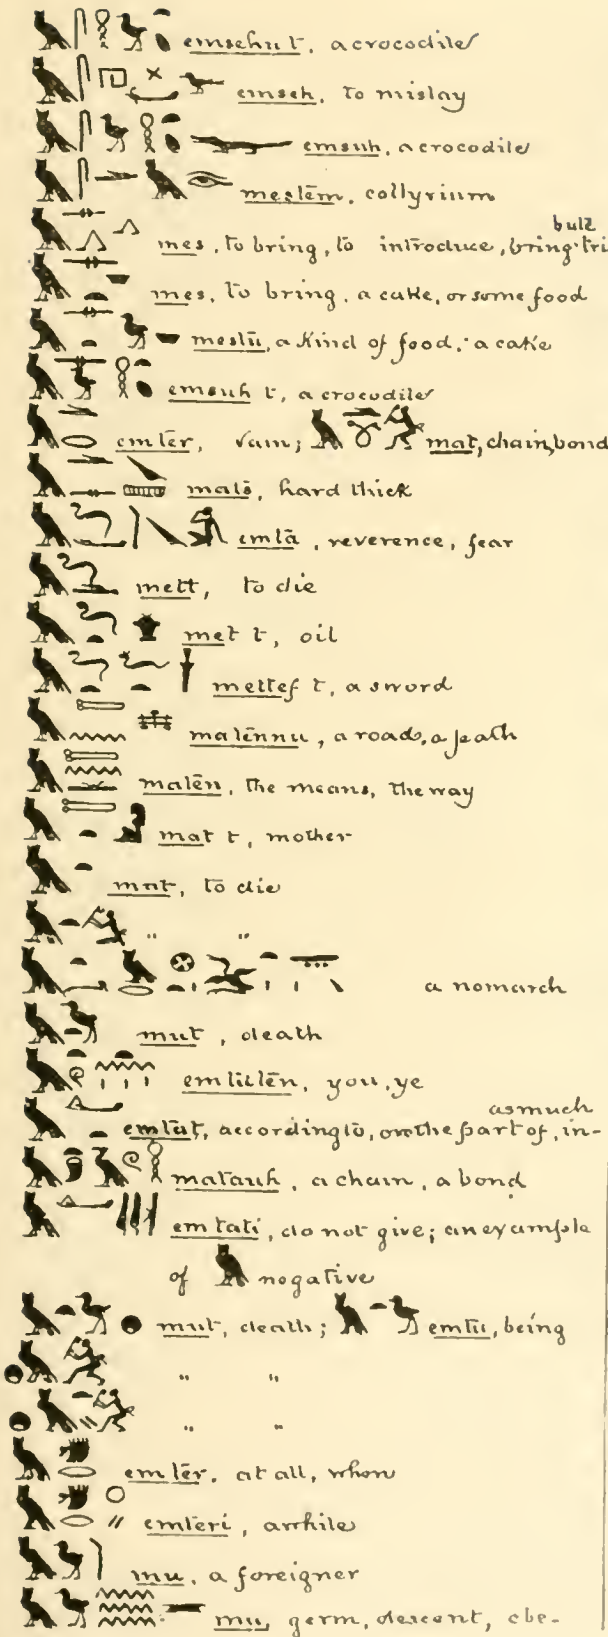 emsehu t, a crocodile
emseh, to mislay
emsuh, a crocodile
mestēm, collyrium
mes, to bring, to introduce, bring tri
bute
mes, to bring, a cake, or some food
mestū, a kind of food, a cake
emsuh t, a crocodile
emtēr, vain; mat, chain, bond
matō, hard thick
emtā, reverence, fear
mett, to die
met t, oil
mettef t, a sword
matēnnu, a road, a path
matēn, the means, the way
mat t, mother
mat, to die
" "
a nomarch
mut, death
emtūtēn, you, ye
as much
emtūt, according to, on the part of, in-
matauh, a chain, a bond
em tati, do not give; an example
of negative
mut, death; emtū, being
" "
" "
em tēr, at all, when
emteri, awhile
mu, a foreigner
mu, germ, descent, che-